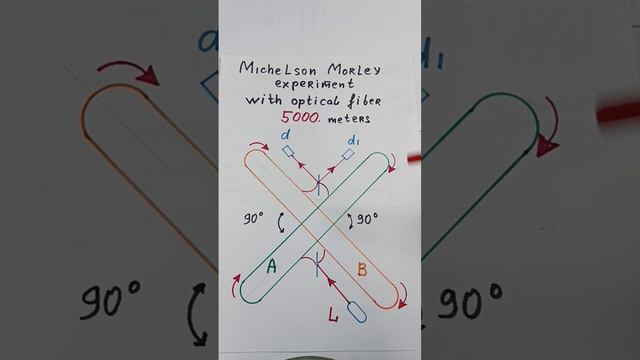 Michelson Morley
experiment
with optical fiber
5000. meters
d
d1
90°
90°
A
B
L
d
d1
90°
90°